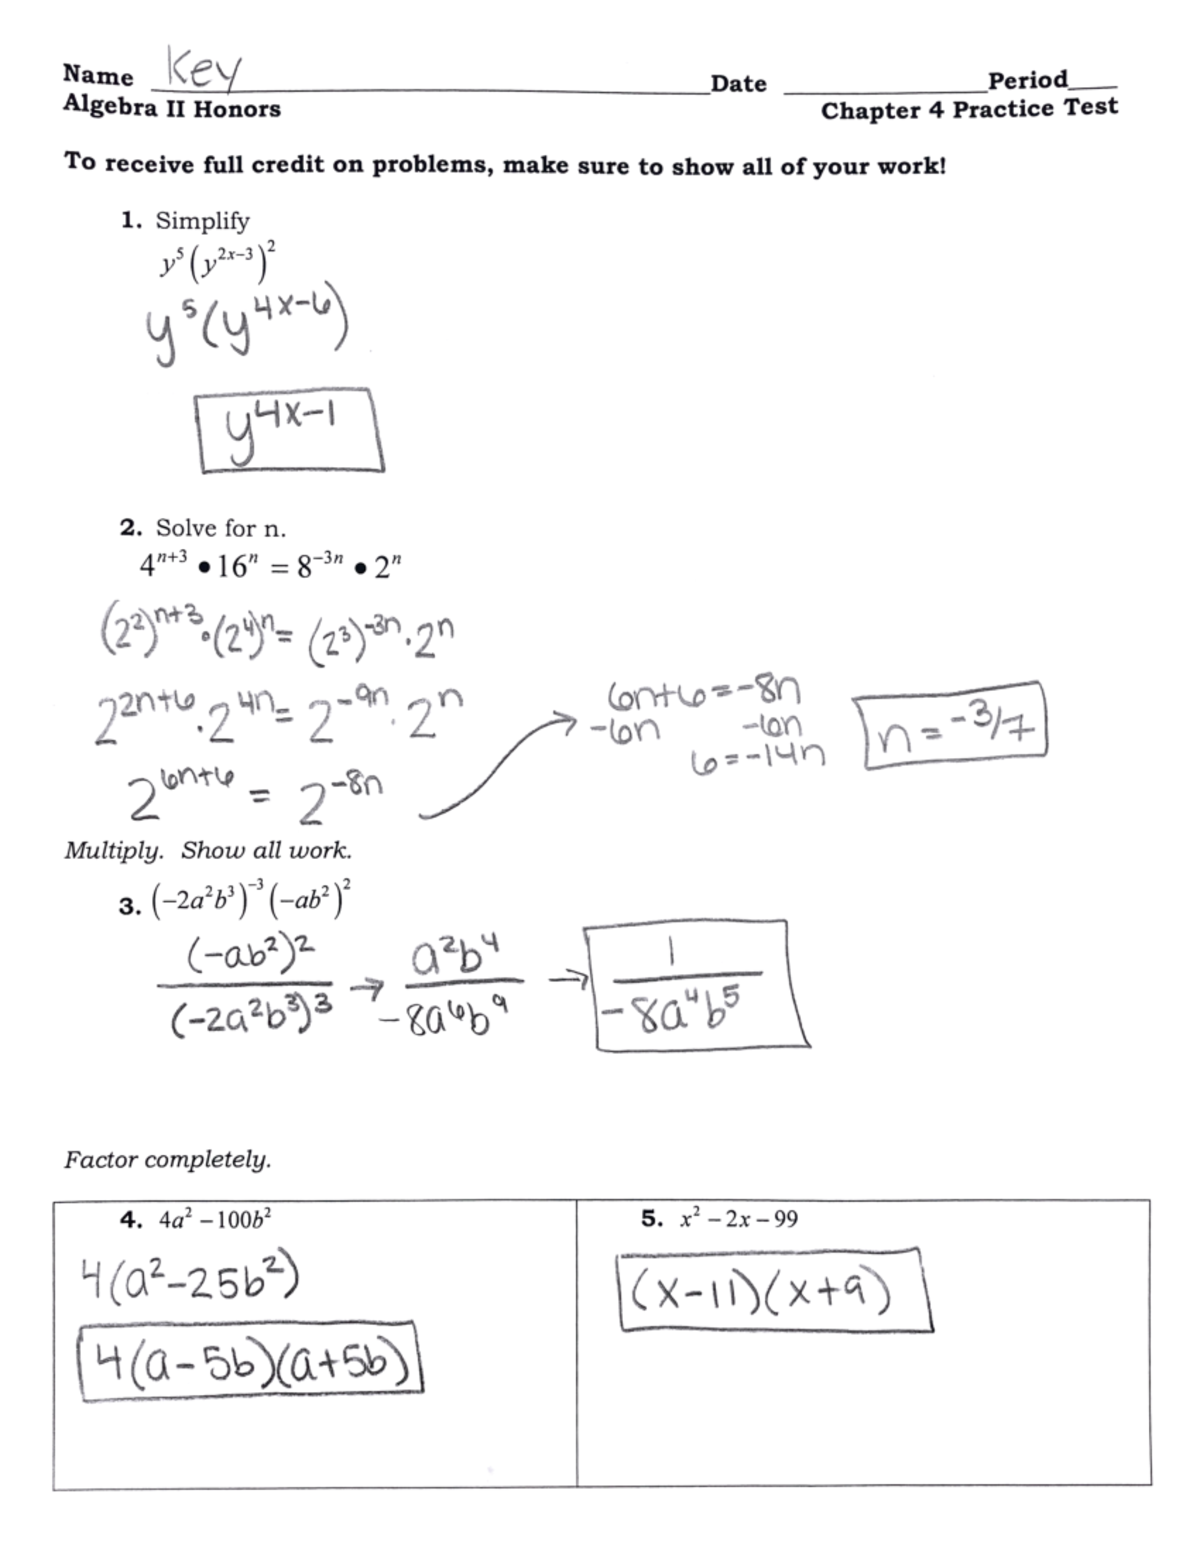 Name Key Date Period
Algebra II Honors Chapter 4 Practice Test
To receive full credit on problems, make sure to show all of your work!
1. Simplify
y⁵(y²ˣ⁻³)²
y⁵(y⁴ˣ⁻⁶)
y⁴ˣ⁻¹
2. Solve for n.
4ⁿ⁺³ • 16ⁿ = 8⁻³ⁿ • 2ⁿ
(2²)ⁿ⁺³ · (2⁴)ⁿ = (2³)⁻³ⁿ · 2ⁿ
2²ⁿ⁺⁶ · 2⁴ⁿ = 2⁻⁹ⁿ · 2ⁿ
2⁶ⁿ⁺⁶ = 2⁻⁸ⁿ
6n+6=-8n
-6n -6n
6=-14n
n = -3/7
Multiply. Show all work.
3. (-2a²b³)⁻³(-ab²)²
(-ab²)² / (-2a²b³)³ → a²b⁴ / -8a⁶b⁹ → 1 / -8a⁴b⁵
Factor completely.
4. 4a² – 100b²
4(a²-25b²)
4(a-5b)(a+5b)
5. x² – 2x – 99
(x-11)(x+9)